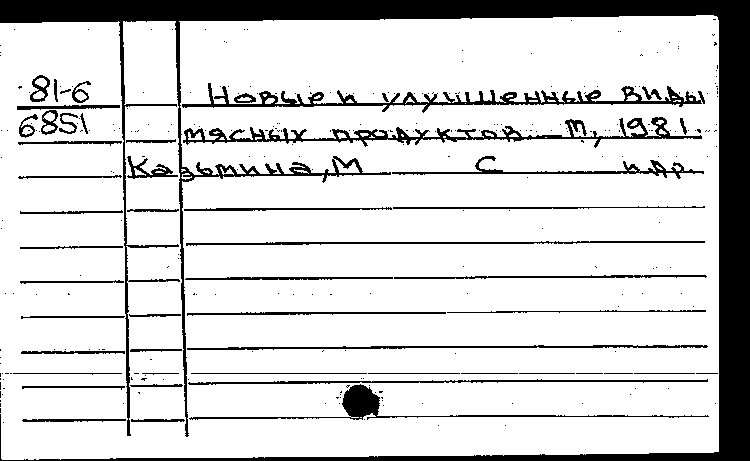 81-6 Новые и улучшенные виды
6851 мясных продуктов. М, 1981.
Казьмина, М С и др.